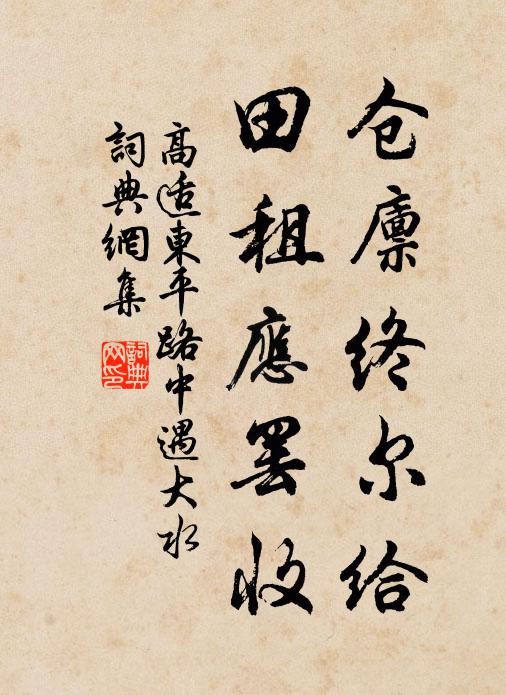 仓廪终尔给
田租應罢收
高适東平路中遇大水
詞典網集
詞典網印